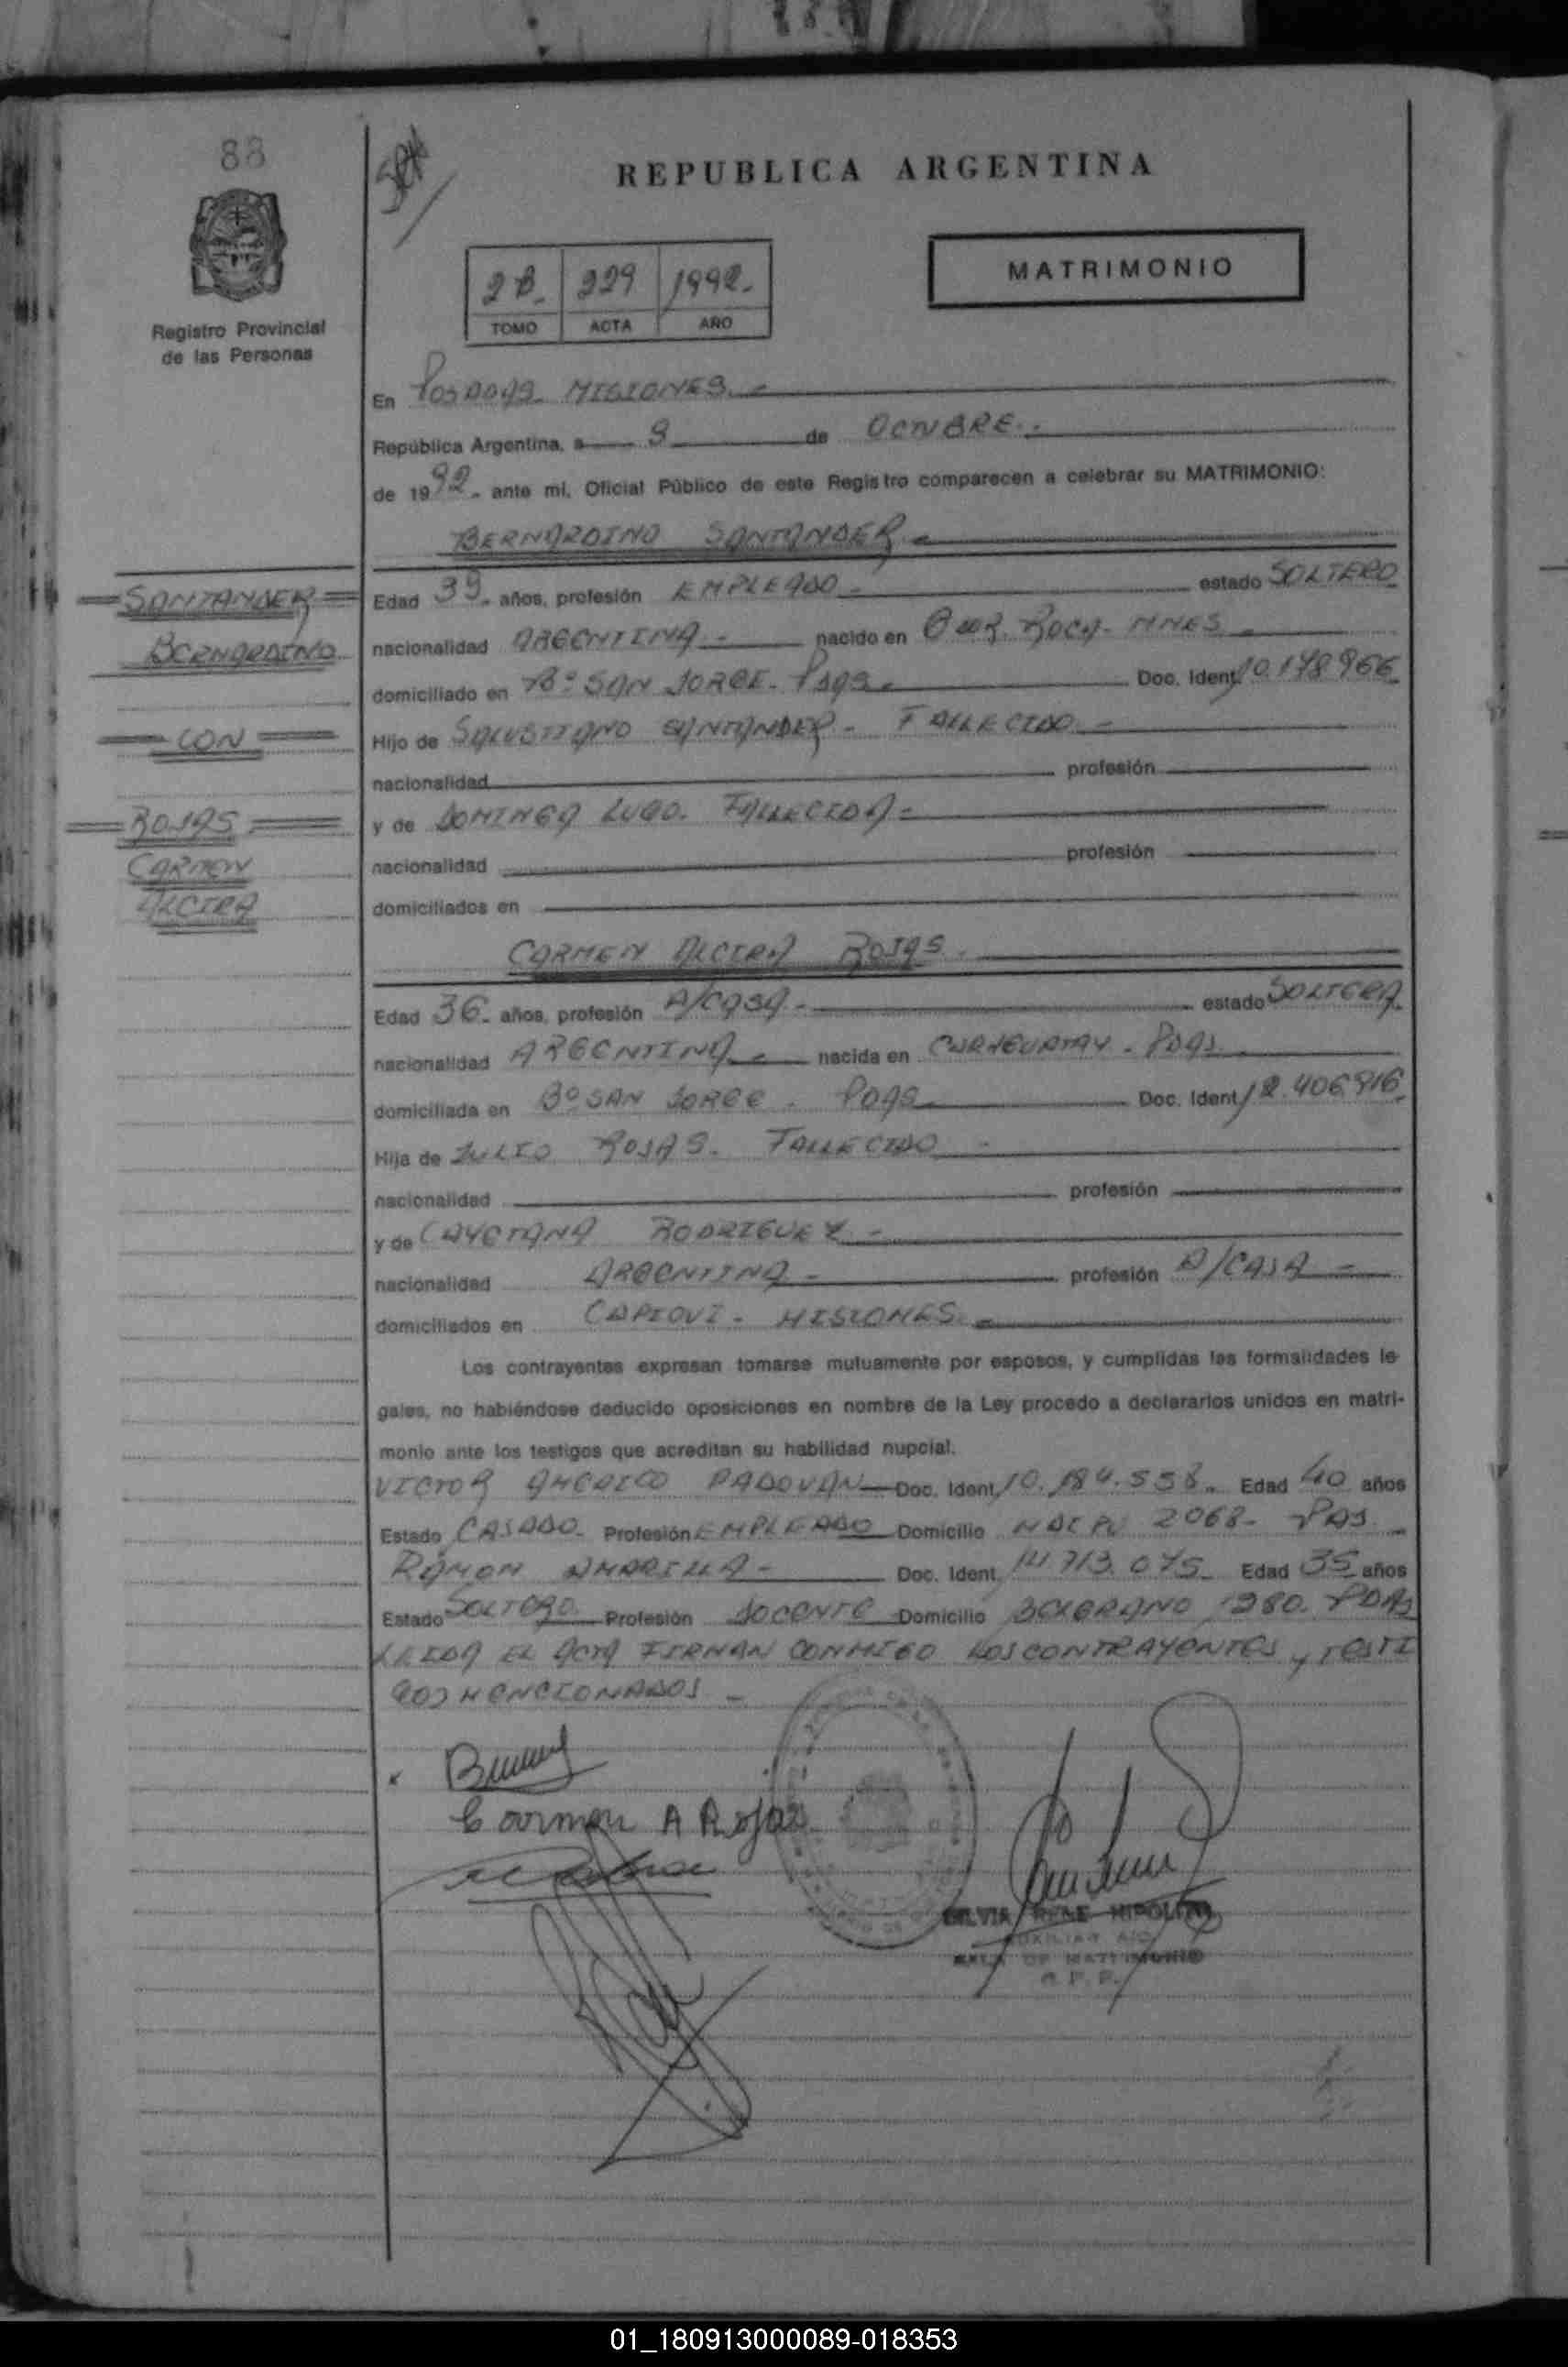 88
REPUBLICA ARGENTINA
MATRIMONIO
2B. 229 1992.
TOMO ACTA AÑO
Registro Provincial
de las Personas
En Posadas MISIONES.-
República Argentina, a 9 de OCTUBRE.-
de 1992. ante mí, Oficial Público de este Registro comparecen a celebrar su MATRIMONIO:
BERNARDINO SANTANDER.-
SANTANDER
BERNARDINO
CON
ROJAS
CARMEN
ALCIRA
Edad 39. años, profesión EMPLEADO.- estado SOLTERO
nacionalidad ARGENTINA.- nacido en ROCA- MNES.
domiciliado en Bº SAN JORGE- Pdas. Doc. Ident. 10.178.966
Hijo de SALUSTIANO SANTANDER- FALLECIDO.-
nacionalidad profesión
y de DOMINGA LUGO. FALLECIDA-
nacionalidad profesión
domiciliados en
CARMEN ALCIRA ROJAS.
Edad 36. años, profesión A/CASA.- estado SOLTERA.
nacionalidad ARGENTINA.- nacida en - PDAS.
domiciliada en Bº SAN JORGE. PDAS. Doc. Ident. 12.406.916.
Hija de JULIO ROJAS. FALLECIDO-
nacionalidad profesión
y de CAYETANA RODRIGUEZ.-
nacionalidad ARGENTINA- profesión A/CASA-
domiciliados en CAPIOVI- MISIONES.-
Los contrayentes expresan tomarse mutuamente por esposos, y cumplidas las formalidades le-
gales, no habiéndose deducido oposiciones en nombre de la Ley procedo a declararlos unidos en matri-
monio ante los testigos que acreditan su habilidad nupcial.
VICTOR AMERICO PADOVAN- Doc. Ident. 10.184.558. Edad 40 años
Estado CASADO- Profesión EMPLEADO Domicilio 2068- PDAS.
RAMON AMARILLA- Doc. Ident. 14.713.075. Edad 35 años
Estado SOLTERO Profesión DOCENTE Domicilio BELGRANO 1380. PDAS
LEIDA EL ACTA FIRMAN CONMIGO LOS CONTRAYENTES y TESTI
GOS MENCIONADOS-
Carmen A Rojas
SILVIA RENE HIPOLITO
AUXILIAR
SALA DE MATRIMONIO
01_180913000089-018353